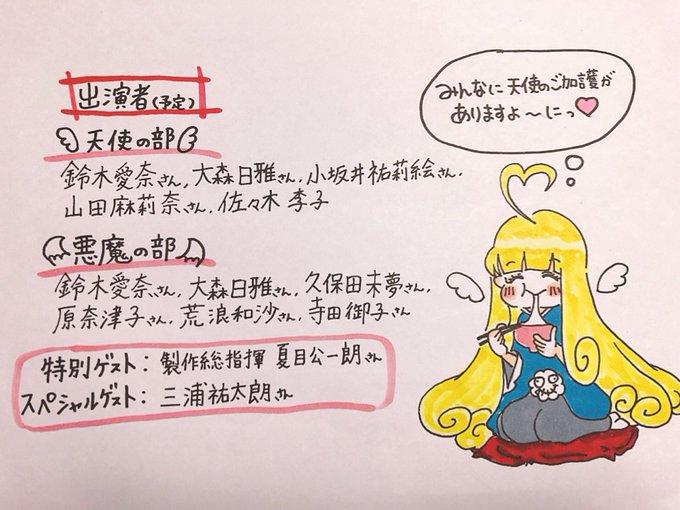 出演者(予定)
天使の部
鈴木愛奈さん, 大森日雅さん, 小坂井祐莉絵さん,
山田麻莉奈さん, 佐々木 李子
悪魔の部
鈴木愛奈さん, 大森日雅さん, 久保田未夢さん,
原奈津子さん, 荒浪和沙さん, 寺田御子さん
特別ゲスト: 製作総指揮 夏目公一朗さん
スペシャルゲスト: 三浦祐太朗さん
みんなに天使のご加護が
ありますよ〜にっ♥